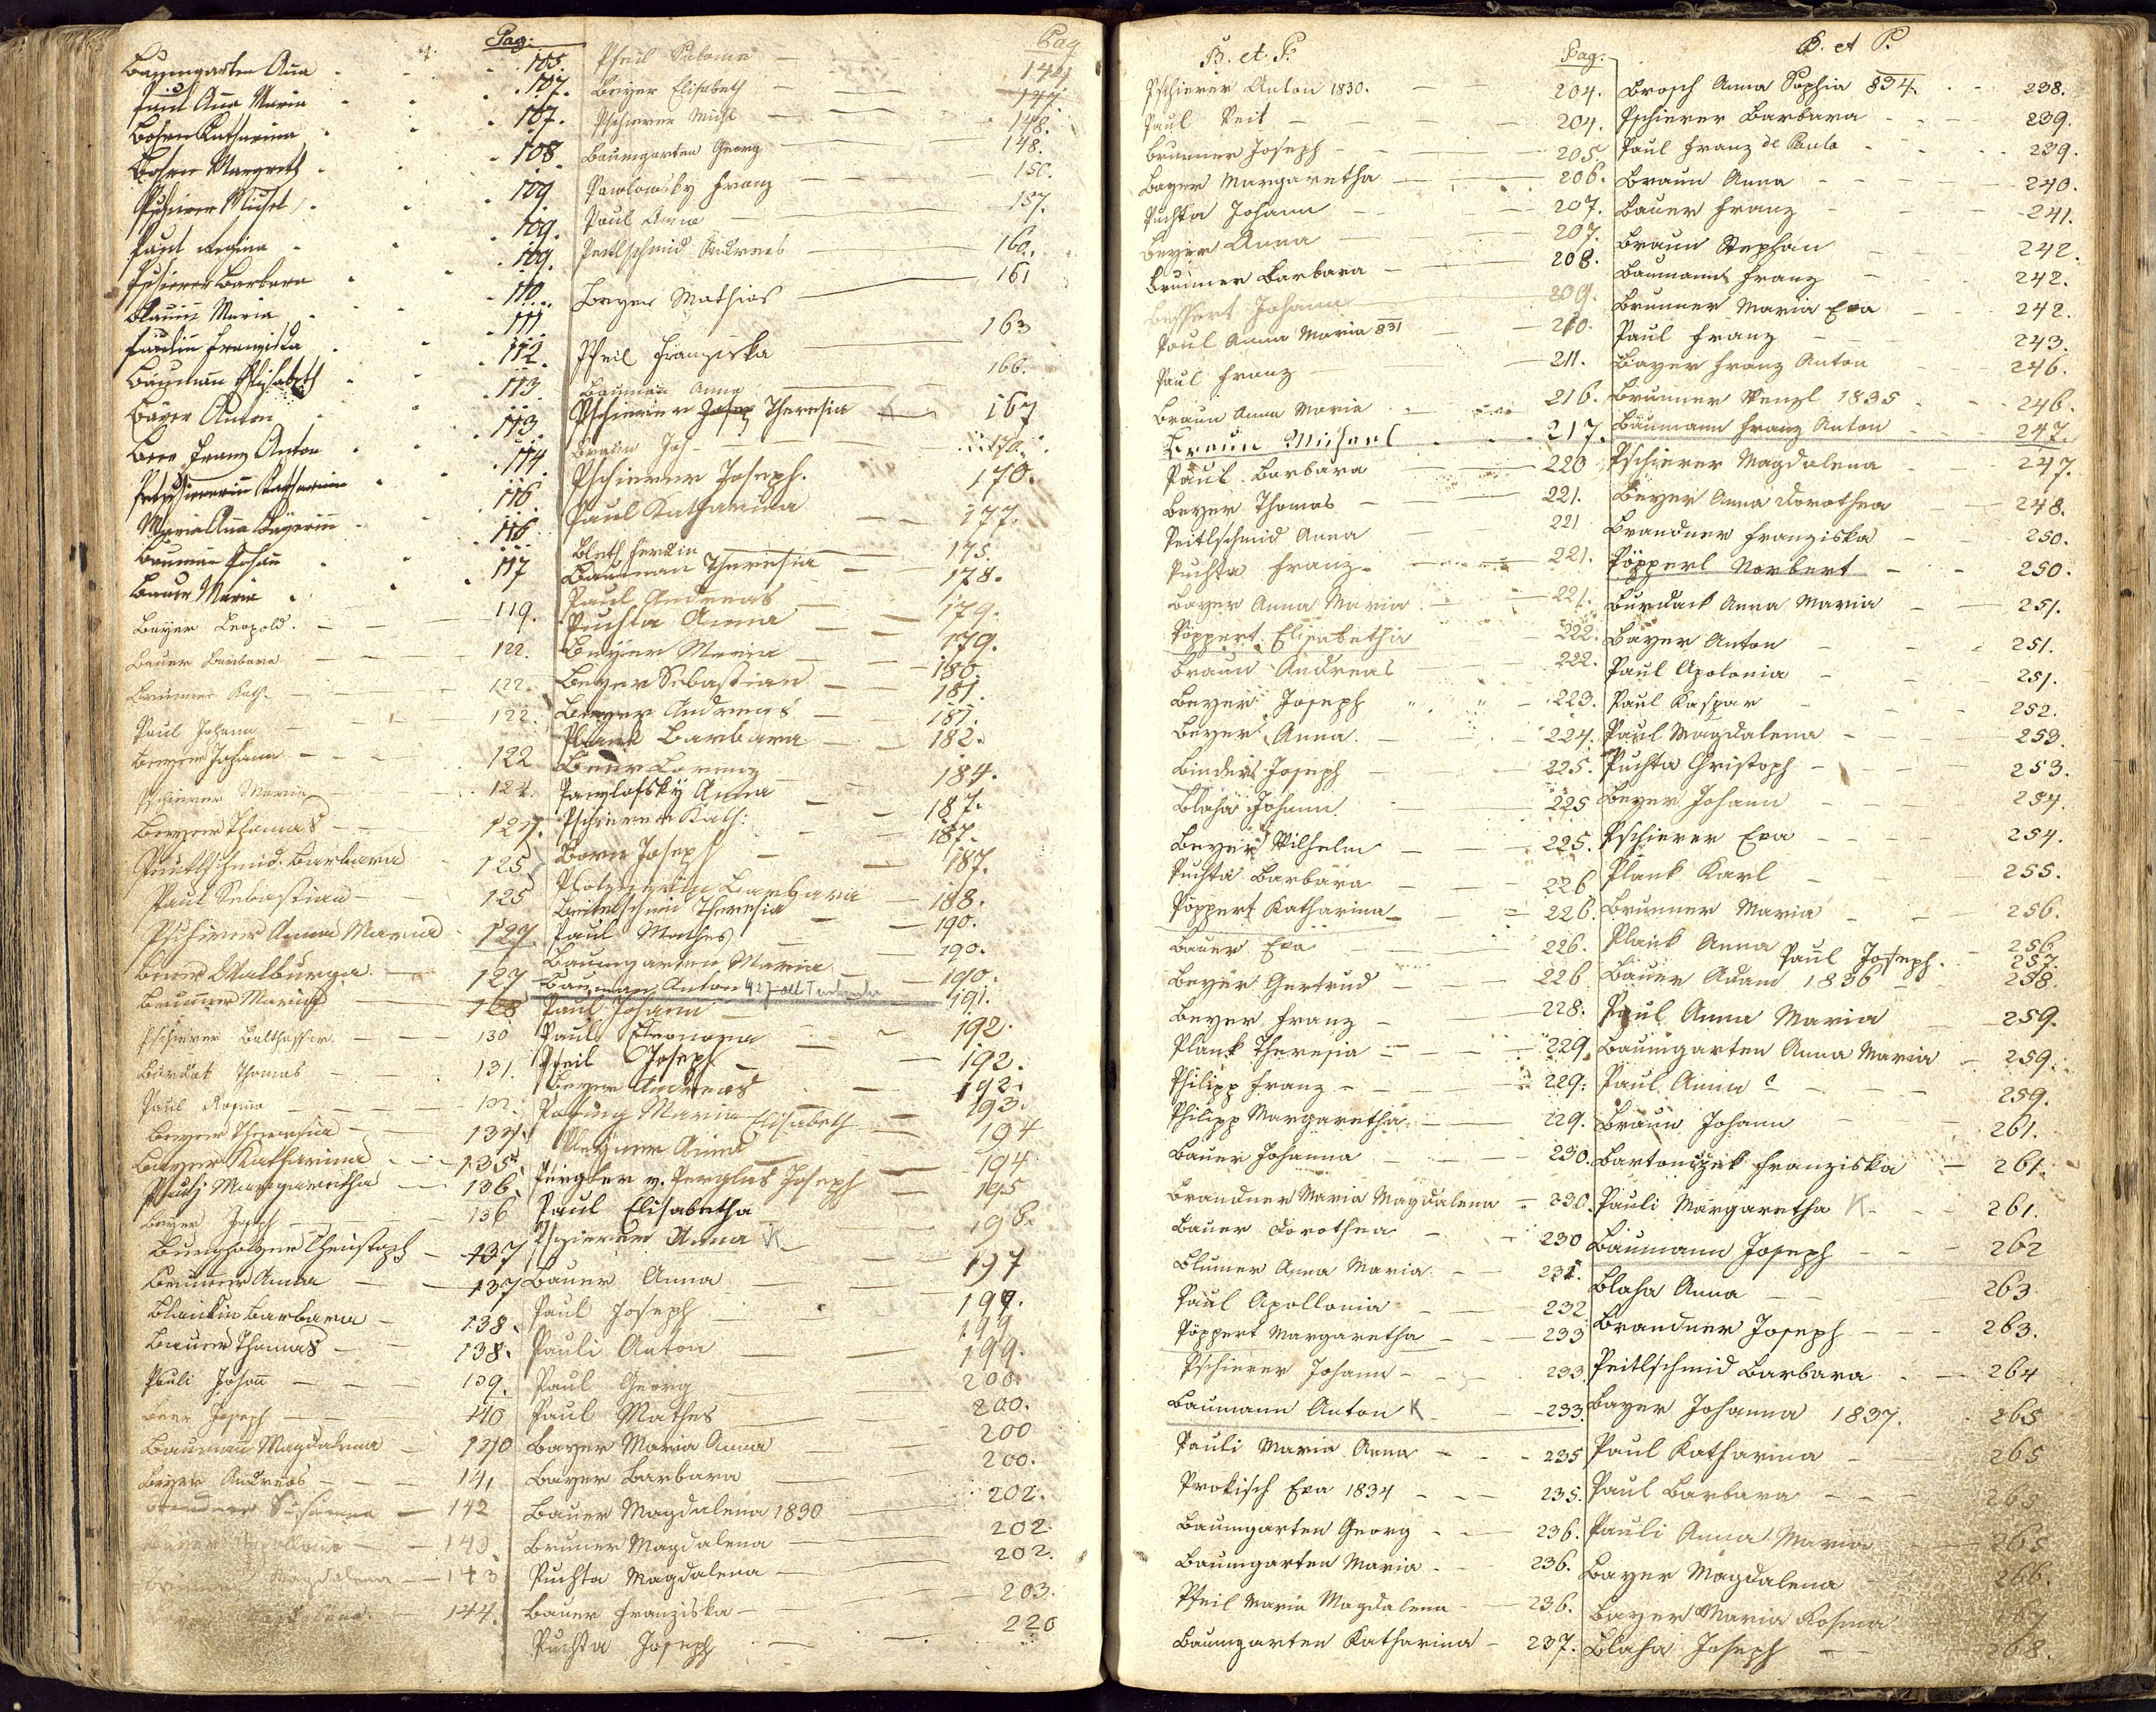 Pag:
Baumgarten Ana 105.
Paul Ana Maria 107.
Bohrn Katharina 107.
Bohrn Margreth 108
Pschirer Michel 109
Paul Regina 109.
Pschierer Barbara 109.
Maria 110.
Paulin Franziska 111.
Bauman Elisabeth 112.
Bayer Anton 113.
Beer Franz Anton 113
Katharina 114.
Maria Ana Bayerin 116.
Bauman Johan 116
Bauer Maria 117
Bayer Leopold 119.
Bauer Barbara 122.
Brunner Kath. 122.
Paul Johann 122.
Beyer Johann 122
Pschierer Maria 124.
Beyer Thomas 124.
Peutlschmid Barbara 125
Paul Sebastian 125
Pschirer Anna Maria 127
Beer Walburga 127
Brunner Maria 128
Pschierer Balthasar 130
Burdak Thomas 131.
Paul Rosina 132.
Beyer Theresia 134.
Bayer Katharina 135.
Paulj Margaretha 136.
Beyer Joseph 136
Burgholzer Christoph 137
Brunner Anna 137
Blankin Barbara 138.
Bauer Thomas 138.
Pauli Johan 139.
Beer Joseph 140
Bauman Magdalena 140
Beyer Andreas 141
Susanna 142
Apollonia 143.
Magdalena 143
144.
Pag
Pfeil Salomea 144
Beyer Elisabeth 147
Pschierer Michl 148.
Baumgarten Georg 148.
Pawlowsky Franz 150.
Paul Anna 157.
Peitlschmid Andreas 160.
Beyer Mathias 161
Pfeil Franziska 163
Bauman Anna 166.
Pschierer Josep Theresia 167
Braun Joh 170.
Pschierer Joseph. 170.
Paul Katharina 177.
Ferdin 175.
Bauman Theresia 178.
Paul Andreas 179.
Puchta Anna 179.
Beyer Maria 180.
Beyer Sebastian 181.
Beyer Andreas 181.
Plank Barbara 182.
Beer Lorenz 184.
Pawlofsky Anna 187.
Pschierer Kath: 187.
Born Joseph 187.
Barbara 188.
Beitelschmid Theresia 190.
Paul Mathes 190.
Baumgarten Maria 190.
Bauman Anton 191.
Paul Johann 192.
Paul Eleonora 192.
Pfeil Joseph 192.
Beyer Andreas 193.
Maria Elisabeth 194
Pleyner Anna 194
Pergler v. Perglas Joseph 195
Paul Elisabetha 196.
Pschierer Anna K 197
Bauer Anna 197.
Paul Joseph 199
Pauli Anton 199.
Paul Georg 200.
Paul Mathes 200.
Bayer Maria Anna 200
Bayer Barbara 200.
Bauer Magdalena 1830 202.
Bruner Magdalena 202.
Puchta Magdalena 202.
Bauer Franziska 203.
Puchta Joseph 220
B. et P. Pag:
Pschierer Anton 1830. 204.
Paul Veit 204.
Brunner Joseph 205
Bayer Margaretha 206.
Puchta Johann 207.
Beyer Anna 207.
Brunner Barbara 208.
Bessert Johann 209.
Paul Anna Maria 831 210.
Paul Franz 211.
Braun Anna Maria 216.
Braun Michael 217.
Paul Barbara 220
Beyer Thomas 221.
Peitlschmid Anna 221
Puchta Franz 221.
Bayer Anna Maria 221.
Pöppert Elisabetha 222.
Braun Andreas 222.
Beyer Joseph 223.
Beyer Anna 224.
Binder Joseph 225.
Blaha Johann 225
Beyer Wilhelm 225.
Puchta Barbara 226
Pöppert Katharina 226.
Bauer Eva 226.
Beyer Gertrud 226
Beyer Franz 228.
Plank Theresia 229.
Philipp Franz 229.
Philipp Margaretha 229.
Bauer Johanna 230.
Brandner Maria Magdalena 230.
Bauer Dorothea 230
Blumer Anna Maria 231.
Paul Apollonia 232
Pöppert Margaretha 233
Pschierer Johann 233.
Baumann Anton K 233.
Pauli Maria Anna 235
Prokisch Eva 1834 235.
Baumgarten Georg 236.
Baumgarten Maria 236.
Pfeil Maria Magdalena 236.
Baumgarten Katharina 237.
B. et P.
Brosch Anna Sophia 834. 238.
Pschierer Barbara 239.
Paul Franz de Paula 239.
Braun Anna 240.
Bauer Franz 241.
Braun Stephan 242.
Baumann Franz 242.
Brunner Maria Eva 242.
Paul Franz 243.
Bayer Franz Anton 246.
Brunner Wenzl 1835 246.
Baumann Franz Anton 247.
Pschierer Magdalena 247.
Beyer Anna Dorothea 248.
Brandner Franziska 250.
Pöpperl Norbert 250.
Burdack Anna Maria 251.
Bayer Anton 251.
Paul Apolonia 251.
Paul Kaspar 252.
Paul Magdalena 253.
Puchta Christoph 253.
Beyer Johann 254.
Pschierer Eva 254.
Plank Karl 255.
Brunner Maria 256.
Plank Anna 256
Paul Joseph. 257.
Bauer Adam 1836 258.
Paul Anna Maria 259.
Baumgarten Anna Maria 259.
Paul Anna 259.
Braun Johann 261.
Bartoniczek Franziska 261.
Pauli Margaretha K 261.
Baumann Joseph 262
Blaha Anna 263
Brandner Joseph 263.
Peitlschmid Barbara 264
Bayer Johanna 1837. 265
Paul Katharina 265
Paul Barbara 265
Pauli Anna Maria 265
Bayer Magdalena 266.
Bayer Maria Rosina 267
Blaha Joseph 268.